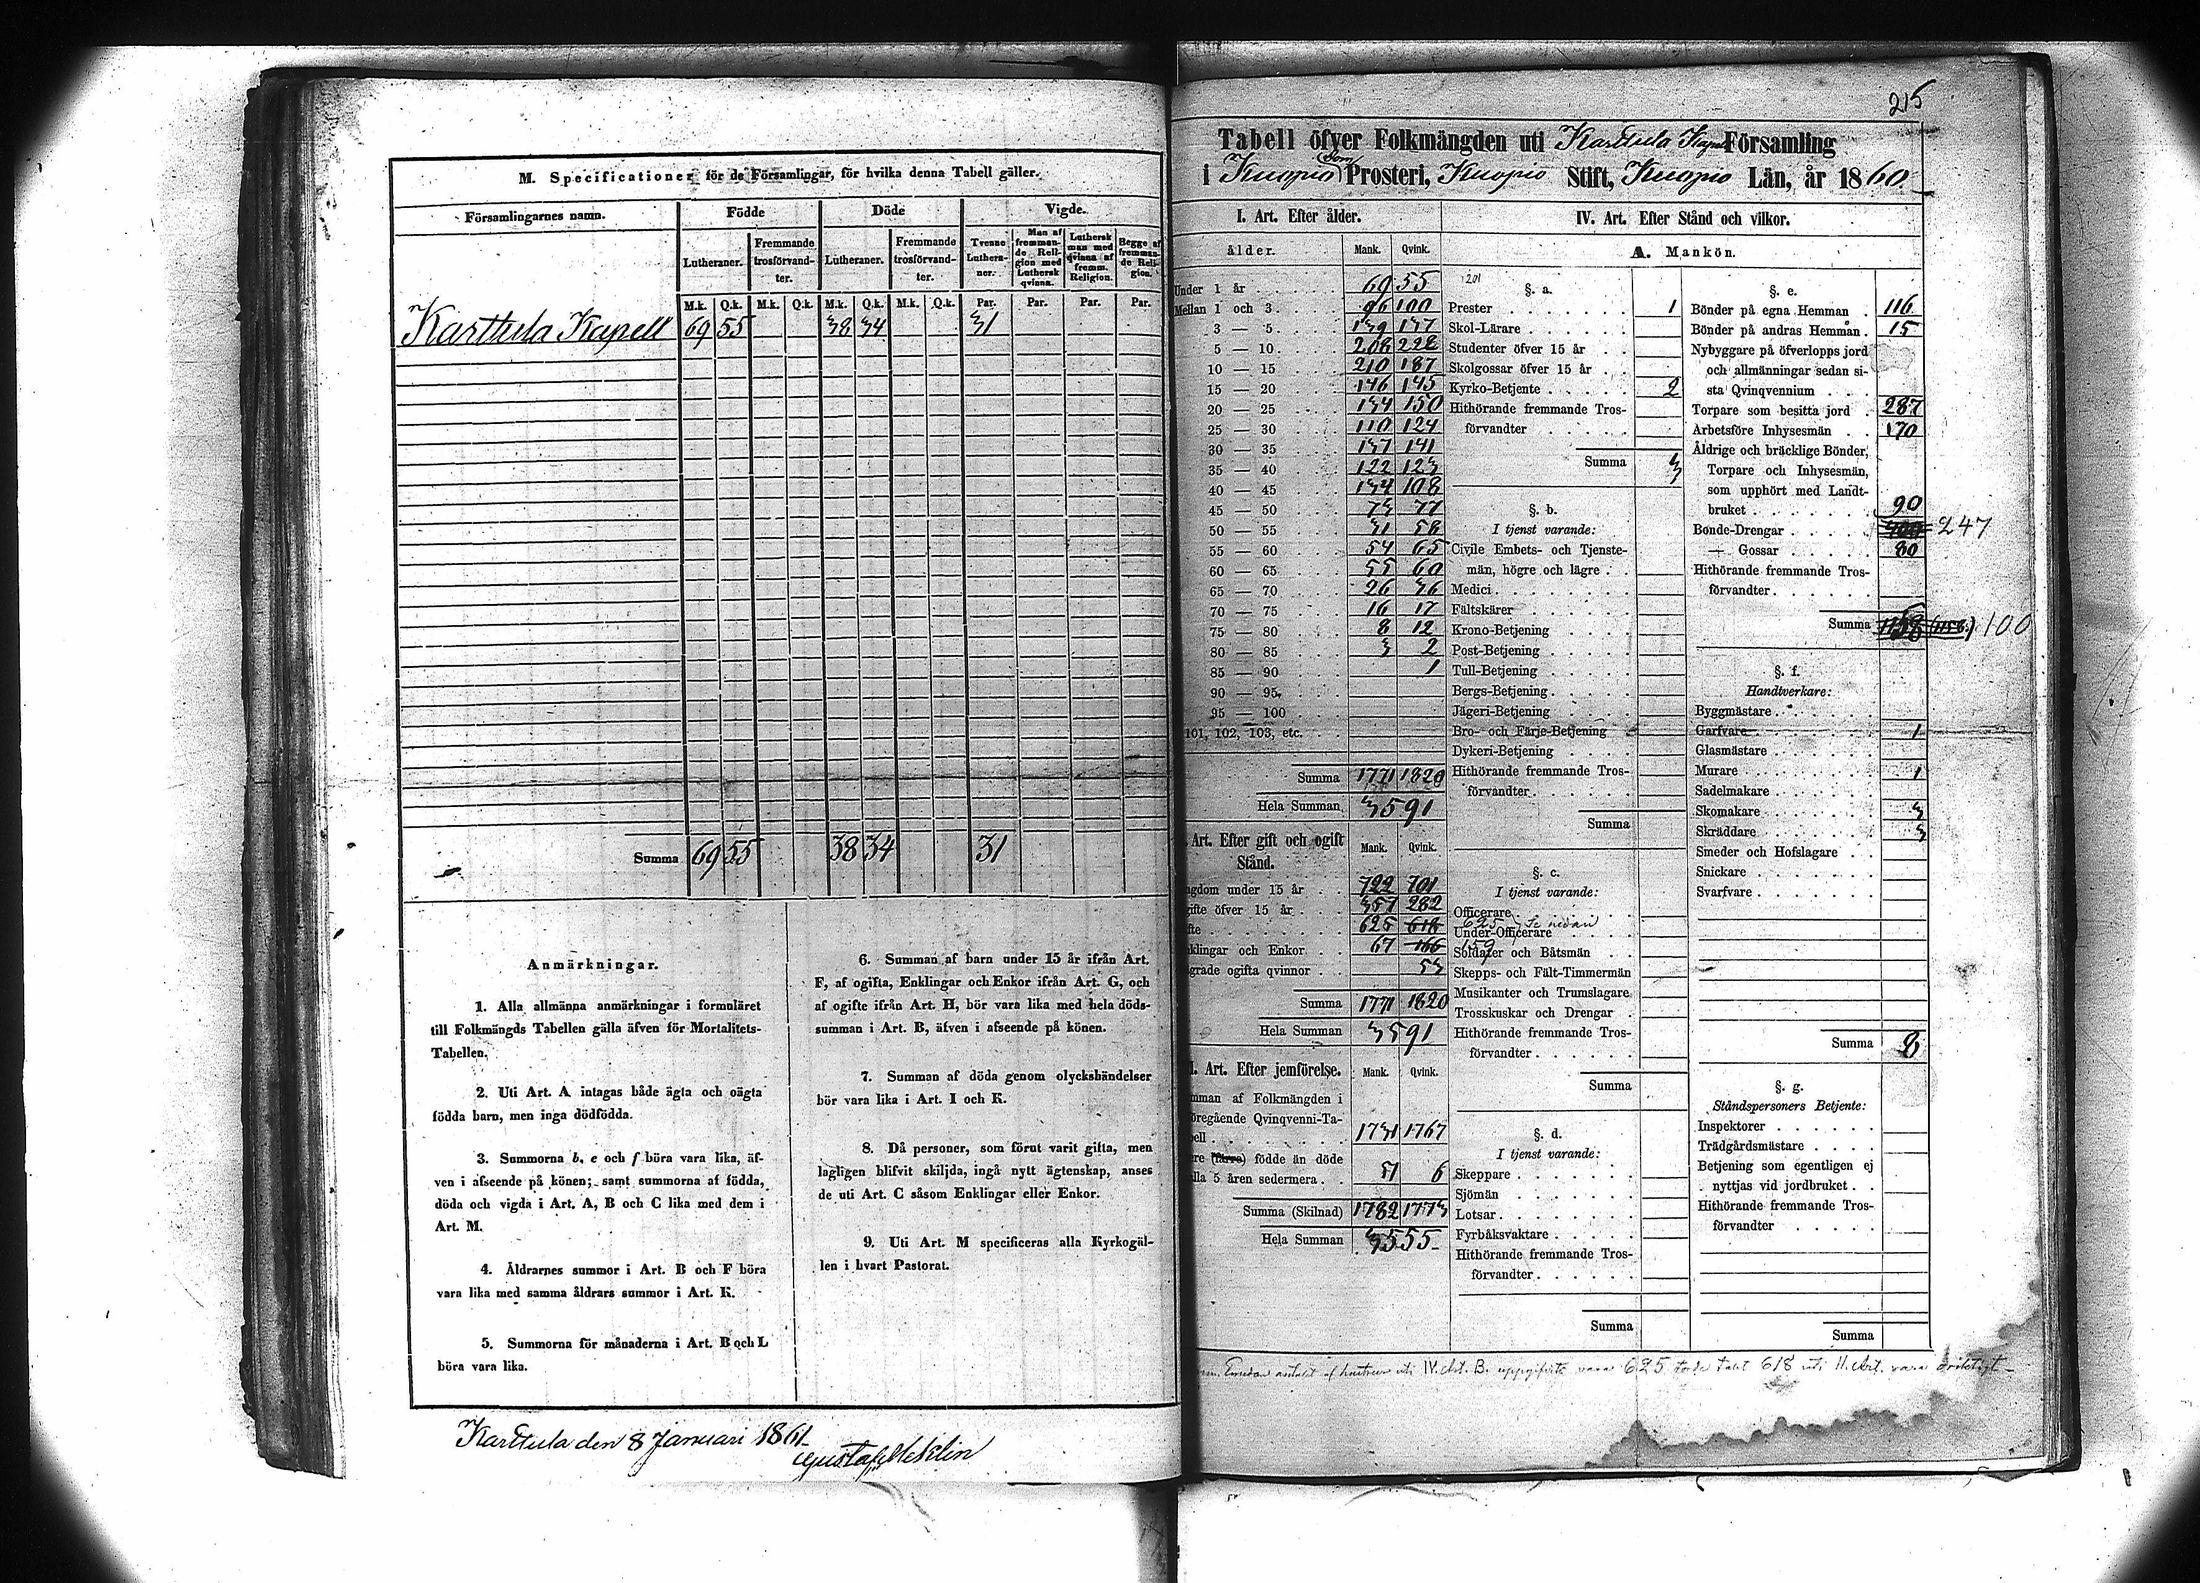 M. Specificationer för de Församlingar, för hvilka denna Tabell gäller.
Församlingarnes namn. Födde Döde Vigde.
Lutheraner. Fremmande trosförvandter. Lutheraner. Fremmande trosförvandter. Tvenne Lutheraner. Man af fremmande Religion med Luthersk qvinna. Luthersk man med qvinna af fremm. Religion. Begge af fremmande Religion.
M.k. Q.k. M.k. Q.k. M.k. Q.k. M.k. Q.k. Par. Par. Par. Par.
Karttula Kapell 69 55 38 34 31
Summa 69 55 38 34 31
Anmärkningar.
1. Alla allmänna anmärkningar i formuläret
till Folkmängds Tabellen gälla äfven för Mortalitets-
Tabellen.
2. Uti Art. A intagas både ägta och oägta
födda barn, men inga dödfödda.
3. Summorna b, e och f böra vara lika, äf-
ven i afseende på könen; samt summorna af födda,
döda och vigda i Art. A, B och C lika med dem i
Art. M.
4. Åldrarnes summor i Art. B och F böra
vara lika med samma åldrars summor i Art. K.
5. Summorna för månaderna i Art. B och L
böra vara lika.
6. Summan af barn under 15 år ifrån Art.
F, af ogifta, Enklingar och Enkor ifrån Art. G, och
af ogifte ifrån Art. H, bör vara lika med hela döds-
summan i Art. B, äfven i afseende på könen.
7. Summan af döda genom olyckshändelser
bör vara lika i Art. I och K.
8. Då personer, som förut varit gifta, men
lagligen blifvit skiljda, ingå nytt ägtenskap, anses
de uti Art. C såsom Enklingar eller Enkor.
9. Uti Art. M specificeras alla Kyrkogäl-
len i hvart Pastorat.
Karttula den 8 Januari 1861
Gustaf Meklin
215
Tabell öfver Folkmängden uti Karttula Kapell Församling
i Kuopio Prosteri, Kuopio Stift, Kuopio Län, år 1860.
I. Art. Efter ålder.
ålder. Mank. Qvink.
Under 1 år 69 55
Mellan 1 och 3 96 100
3 — 5 139 137
5 — 10 208 228
10 — 15 210 187
15 — 20 146 145
20 — 25 134 150
25 — 30 110 124
30 — 35 137 141
35 — 40 122 123
40 — 45 134 108
45 — 50 73 77
50 — 55 31 58
55 — 60 54 65
60 — 65 55 60
65 — 70 26 36
70 — 75 16 17
75 — 80 8 12
80 — 85 3 2
85 — 90 1
90 — 95
95 — 100
101, 102, 103, etc.
Summa 1771 1820
Hela Summan 3591
Art. Efter gift och ogift
Stånd. Mank. Qvink.
ngdom under 15 år 722 701
gifte öfver 15 år 357 282
fte 625 618 625 Se nedan
nklingar och Enkor 67 166 159
grade ogifta qvinnor 53
Summa 1771 1820
Hela Summan 3591
I. Art. Efter jemförelse. Mank. Qvink.
mman af Folkmängden i
öregående Qvinqvenni-Ta-
bell 1731 1767
ere (färre) födde än döde
lla 5 åren sedermera 51 6
Summa (Skilnad) 1782 1773
Hela Summan 3555
IV. Art. Efter Stånd och vilkor.
A. Mankön.
201
§. a.
Prester 1
Skol-Lärare
Studenter öfver 15 år
Skolgossar öfver 15 år
Kyrko-Betjente 2
Hithörande fremmande Tros-
förvandter
Summa 3
§. b.
I tjenst varande:
Civile Embets- och Tjenste-
män, högre och lägre
Medici
Fältskärer
Krono-Betjening
Post-Betjening
Tull-Betjening
Bergs-Betjening
Jägeri-Betjening
Bro- och Färje-Betjening
Dykeri-Betjening
Hithörande fremmande Tros-
förvandter
Summa
§. c.
I tjenst varande:
Officerare
Under-Officerare
Soldater och Båtsmän
Skepps- och Fält-Timmermän
Musikanter och Trumslagare
Trosskuskar och Drengar
Hithörande fremmande Tros-
förvandter
Summa
§. d.
I tjenst varande:
Skeppare
Sjömän
Lotsar
Fyrbåksvaktare
Hithörande fremmande Tros-
förvandter
Summa
§. e.
Bönder på egna Hemman 116
Bönder på andras Hemman 15
Nybyggare på öfverlopps jord
och allmänningar sedan si-
sta Qvinqvennium
Torpare som besitta jord 287
Arbetsföre Inhysesmän 170
Åldrige och bräcklige Bönder,
Torpare och Inhysesmän,
som upphört med Landt-
bruket 90
Bonde-Drengar 247
— Gossar 80
Hithörande fremmande Tros-
förvandter
Summa 1158 (1158) 100
§. f.
Handtverkare:
Byggmästare
Garfvare 1
Glasmästare
Murare 1
Sadelmakare
Skomakare 3
Skräddare 3
Smeder och Hofslagare
Snickare
Svarfvare
Summa 8
§. g.
Ståndspersoners Betjente:
Inspektorer
Trädgårdsmästare
Betjening som egentligen ej
nyttjas vid jordbruket
Hithörande fremmande Tros-
förvandter
Summa
antalet af hustrur uti IV. Art. B. uppgifvits vara 625 torde talet 618 uti II. Art. vara oriktigt